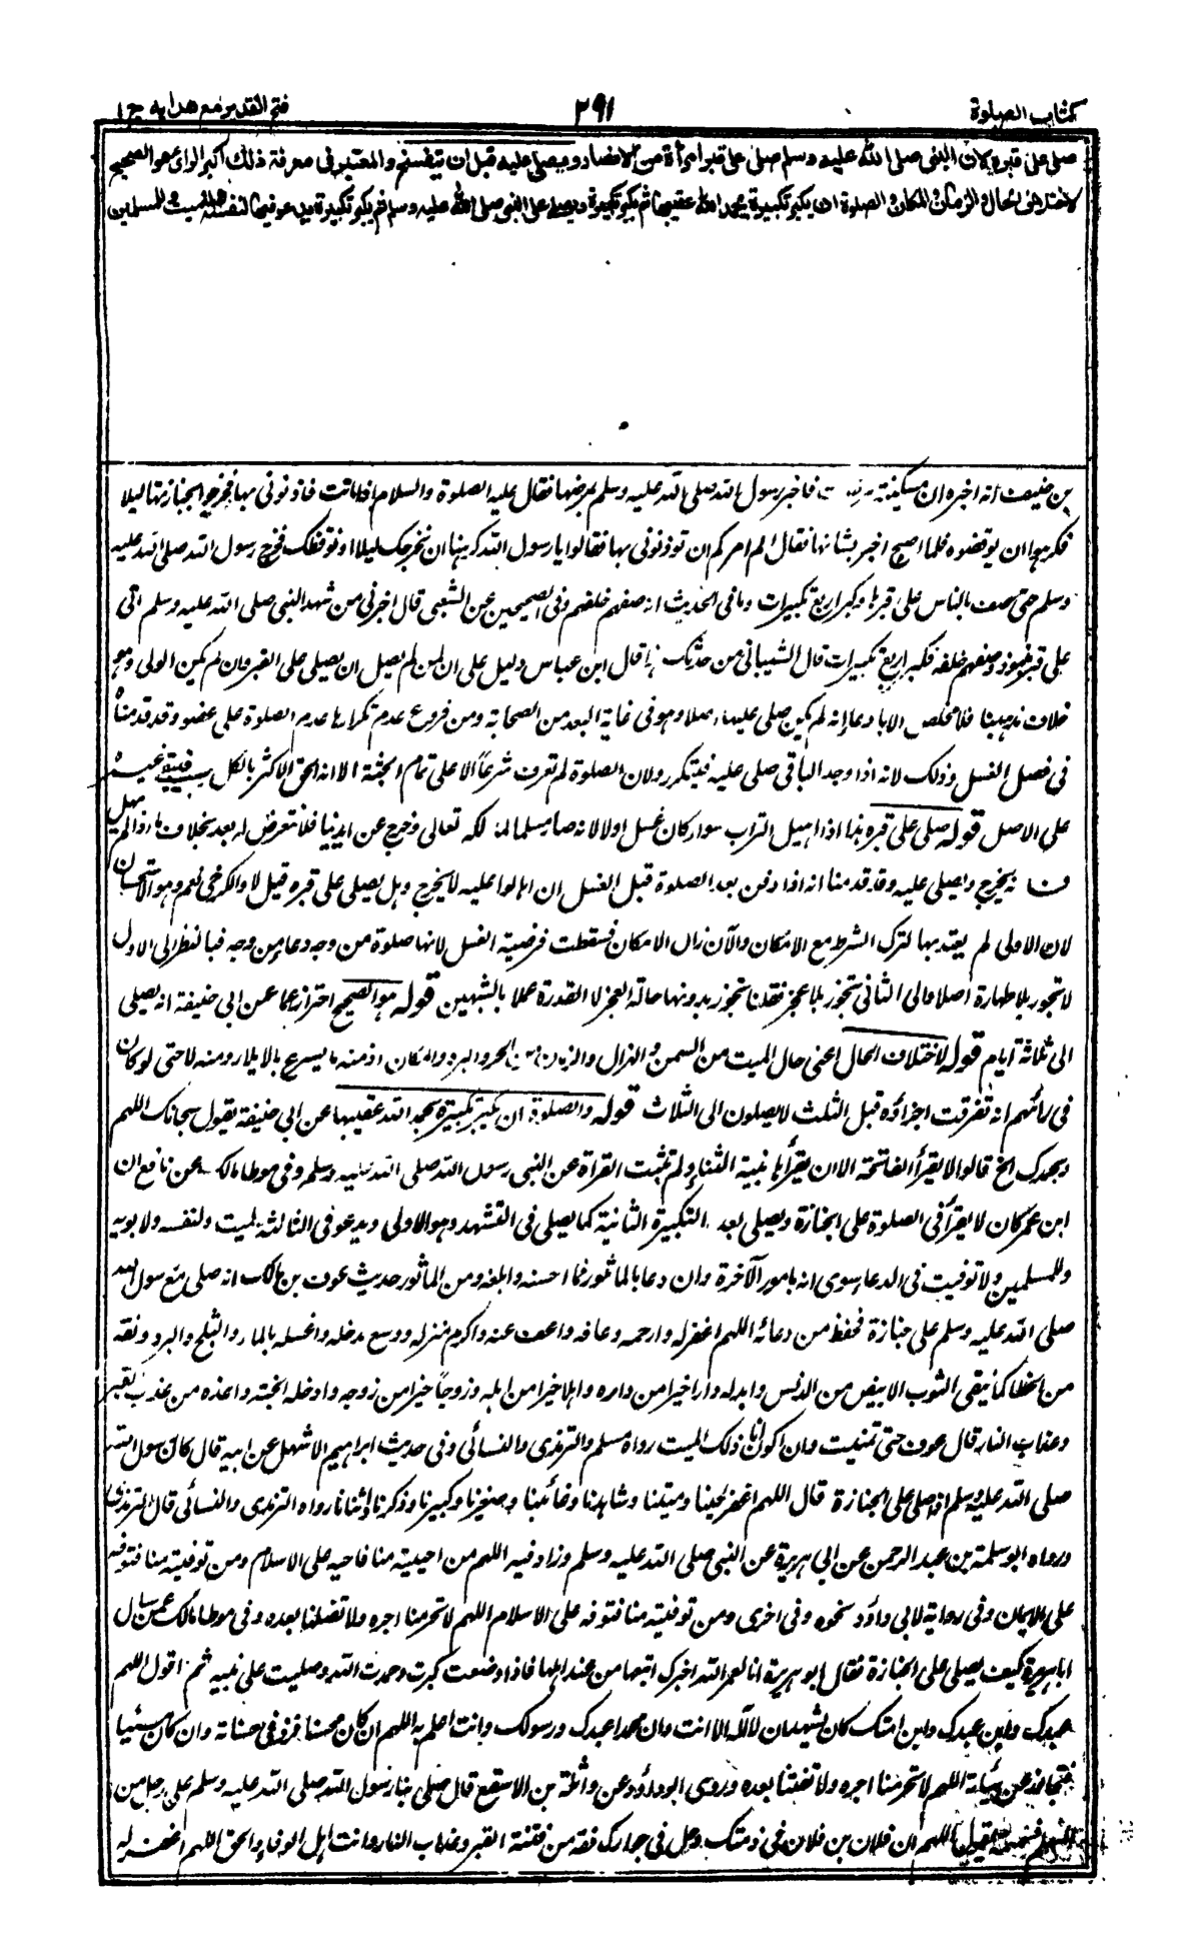 كتاب الصلوة
٢٩١
فتح القدير مع هدايه ج ١
صلى على قبره لان النبى صلى الله عليه وسلم صلى على قبر امرأة من الانصار ويصلى عليه قبل ان يتفسخ والمعتبر فى معرفة ذلك اكبر الراى هو الصحيح
لاختلاف الحال والزمان والمكان والصلوة ان يكبر تكبيرة يحمد الله عقيبها ثم يكبر تكبيرة ويصلى على النبى صلى الله عليه وسلم ثم يكبر تكبيرة يدعو فيها لنفسه وللميت وللمسلمين
بن حنيف انه اخبره ان مسكينة مرضت فاخبر رسول الله صلى الله عليه وسلم بمرضها فقال عليه الصلوة والسلام اذا ماتت فاذنونى بها فخرج بجنازتها ليلا
فكرهوا ان يوقظوه فلما اصبح اخبر بشانها فقال الم امركم ان توذنونى بها فقالوا يا رسول الله كرهنا ان نخرجك ليلا او نوقظك فخرج رسول الله صلى الله عليه
وسلم حتى صف بالناس على قبرها وكبر اربع تكبيرات وما فى الحديث انه صفهم خلفه وفى الصحيحين عن الشعبى قال اخبرنى من شهد النبى صلى الله عليه وسلم اتى
على قبر منبوذ فصفهم خلفه فكبر اربع تكبيرات قال الشيبانى من حدثك بهذا قال ابن عباس دليل على ان لمن لم يصل ان يصلى على القبر وان لم يكن الولى وهو
خلاف مذهبنا فلا مخلص الا بادعاء انه لم يكن صلى عليها اصلا وهو فى غاية البعد من الصحابة ومن فروع عدم تكرارها عدم الصلوة على عضو وقد قدمناه
فى فصل الغسل وذلك لانه اذا وجد الباقى صلى عليه فيتكرر ولان الصلوة لم تعرف شرعاً الا على تمام الجثة الا انه الحق الاكثر بالكل فيبقى غيره
على الاصل قوله صلى على قبره هذا اذا اهيل التراب سواء كان غسل اولا لانه صار مسلما لمالكه تعالى وخرج عن ايدينا فلا نتعرض له بعد بخلاف ما اذا لم يهل
فانه يخرج ويصلى عليه وقد قدمنا انه اذا دفن بعد الصلوة قبل الغسل ان اهالوا عليه لا يخرج وهل يصلى على قبره قيل لا والكرخى نعم وهو الاستحسان
لان الاولى لم يعتد بها لترك الشرط مع الامكان والآن زال الامكان فسقطت فرضية الغسل لانها صلوة من وجه ودعاء من وجه فبالنظر الى الاول
لا تجوز بلا طهارة اصلا والى الثانى تجوز بلا عجز فقلنا تجوز بدونها حالة العجز لا القدرة عملا بالشبهين قوله هو الصحيح احتراز عما عن ابى حنيفة انه يصلى
الى ثلاثة ايام قوله لاختلاف الحال اعنى حال الميت من السمن والهزال والزمان من الحر والبرد والمكان اذ منه ما يسرع بالابلاء ومنه لا حتى لو كان
فى رائهم انه تفرقت اجزاؤه قبل الثلث لا يصلون الى الثلاث قوله والصلوة ان يكبر تكبيرة يحمد الله عقيبها عن ابى حنيفة يقول سبحانك اللهم
وبحمدك الخ قالوا لا يقرأ الفاتحة الا ان يقرأها بنية الثناء ولم تثبت القراة عن النبى رسول الله صلى الله عليه وسلم وفى موطا مالك عن نافع ان
ابن عمر كان لا يقرأ فى الصلوة على الجنازة ويصلى بعد التكبيرة الثانية كما يصلى فى التشهد وهو الاولى ويدعو فى الثالثة لميت ولنفسه ولابويه
وللمسلمين ولا توقيت فى الدعاء سوى انه بامور الآخرة وان دعا بالماثور فما احسنه وابلغه ومن الماثور حديث عوف بن مالك انه صلى مع رسول الله
صلى الله عليه وسلم على جنازة فحفظ من دعائه اللهم اغفر له وارحمه وعافه واعف عنه واكرم نزله ووسع مدخله واغسله بالماء والثلج والبرد ونقه
من الخطايا كما ينقى الثوب الابيض من الدنس وابدله داراً خيرا من داره واهلا خيرا من اهله وزوجاً خيرا من زوجه وادخله الجنة واعذه من عذاب القبر
وعذاب النار قال عوف حتى تمنيت ان اكون انا ذلك الميت رواه مسلم والترمذى والنسائى وفى حديث ابراهيم الاشهل عن ابيه قال كان رسول الله
صلى الله عليه وسلم اذا صلى على الجنازة قال اللهم اغفر لحينا وميتنا وشاهدنا وغائبنا وصغيرنا وكبيرنا وذكرنا وانثانا رواه الترمذى والنسائى قال الترمذى
ورواه ابو سلمة بن عبد الرحمن عن ابى هريرة عن النبى صلى الله عليه وسلم وزاد فيه اللهم من احييته منا فاحيه على الاسلام ومن توفيته منا فتوفه
على الايمان وفى رواية لابى داود نحوه وفى اخرى ومن توفيته منا فتوفه على الاسلام اللهم لا تحرمنا اجره ولا تضلنا بعده وفى موطا مالك عمن سال
ابا هريرة كيف يصلى على الجنازة فقال ابو هريرة انا لعمر الله اخبرك اتبعها من عند اهلها فاذا وضعت كبرت وحمدت الله وصليت على نبيه ثم اقول اللهم
عبدك وابن عبدك وابن امتك كان يشهد ان لا اله الا انت وان محمدا عبدك ورسولك وانت اعلم به اللهم ان كان محسنا فزد فى حسناته وان كان مسيئا
فتجاوز عن سيئاته اللهم لا تحرمنا اجره ولا تفتنا بعده وروى ابو داود عن واثلة بن الاسقع قال صلى بنا رسول الله صلى الله عليه وسلم على رجل من
المسلمين فسمعته يقول اللهم ان فلان بن فلان فى ذمتك وحل فى جوارك فقه من فتنة القبر وعذاب النار وانت اهل الوفاء والحق اللهم اغفر له